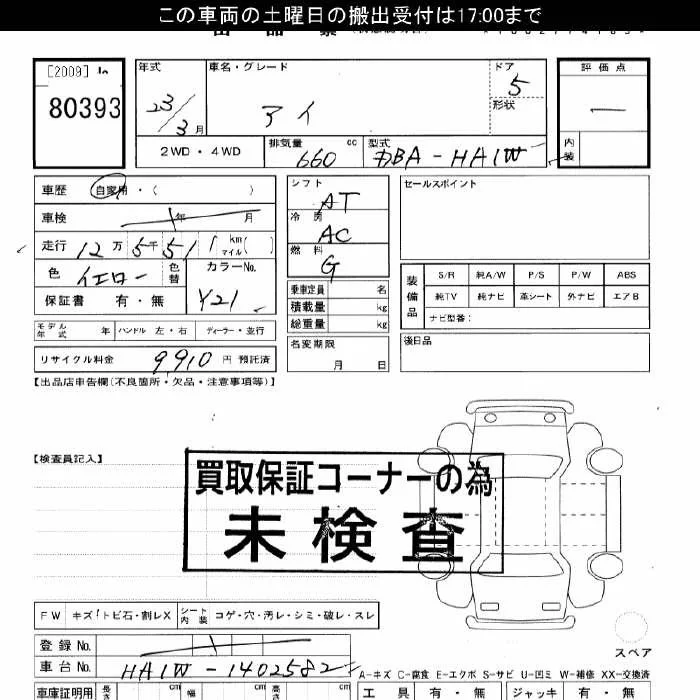 この車両の土曜日の搬出受付は17:00まで
[2009]
80393
年式 車名・グレード ドア 評価点
23/3月 アイ 5
形状
2WD・4WD 排気量 660 cc 型式 DBA-HA1W 内装
車歴 自家用・( )
車検 年 月
走行 12万5千51 km マイル( )
色 イエロー 色替 カラーNo. Y21
保証書 有・無
シフト AT
冷房 AC
燃料 G
乗車定員 名
積載量 kg
総重量 kg
セールスポイント
装備品 S/R 純A/W P/S P/W ABS
純TV 純ナビ 革シート 外ナビ エアB
ナビ型番:
モデル年式 年 ハンドル 左・右 ディーラー・並行
名変期限 月 日
後日品
リサイクル料金 9910 円 預託済
【出品店申告欄(不良箇所・欠品・注意事項等)】
【検査員記入】
買取保証コーナーの為
未検査
FW キズ!トビ石・割レX シート内装 コゲ・穴・汚レ・シミ・破レ・スレ
スペア
登録No.
車台No. HA1W-1402582
A-キズ C-腐食 E-エクボ S-サビ U-凹ミ W-補修 XX-交換済
車庫証明用 長さ cm 幅 cm cm 工具 有・無 ジャッキ 有・無